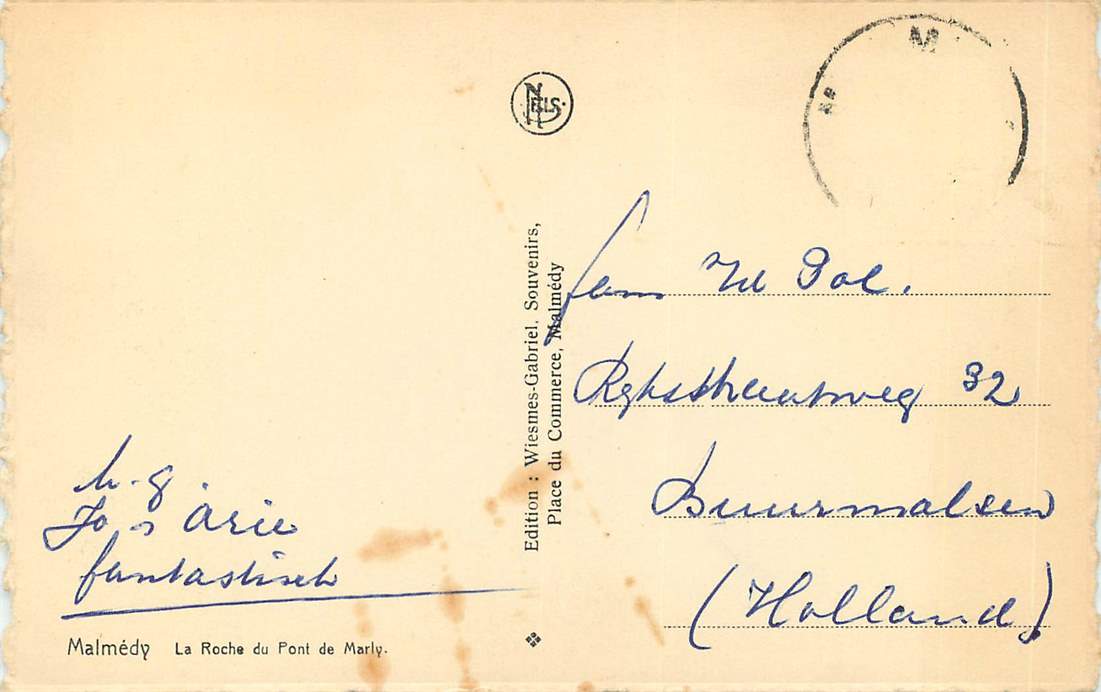 M
NELS
Edition : Wiesmes-Gabriel, Souvenirs,
Place du Commerce, Malmédy
fam Pol.
Rykstraatweg 32
Buurmalsen
(Holland)
h-g
Jo Arie
fantastisch
Malmédy La Roche du Pont de Marly.